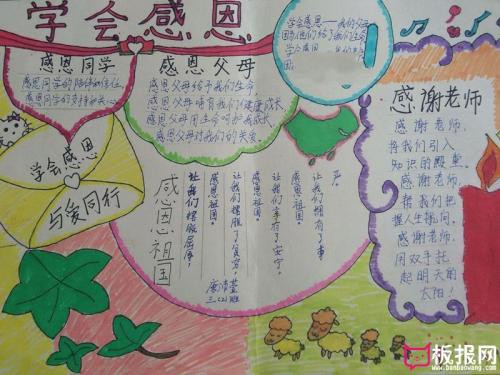 学会感恩
感恩同学
感恩同学的陪伴和信任,
感恩同学的支持和关心。
感恩父母
感恩父母给予我们生命,
感恩父母哺育我们健康成长,
感恩父母用生命呵护我成长,
感恩父母对我们的关爱。
学会感恩——我们的父母
因为他们给予了我们生命
学会感恩
学会感恩
与爱同行
感恩祖国
让我们摆脱屈辱,
感恩祖国。
让我们摆脱了贫穷,
感恩祖国。
让我们享有了安宁,
感恩祖国。
让我们拥有了尊
严。
三(2)班
感谢老师
感谢老师,
将我们引入
知识的殿堂
感谢老师,
帮我们把
握人生航向。
感谢老师,
用双手托
起明天的
太阳!
板报网
www.banbaowang.com